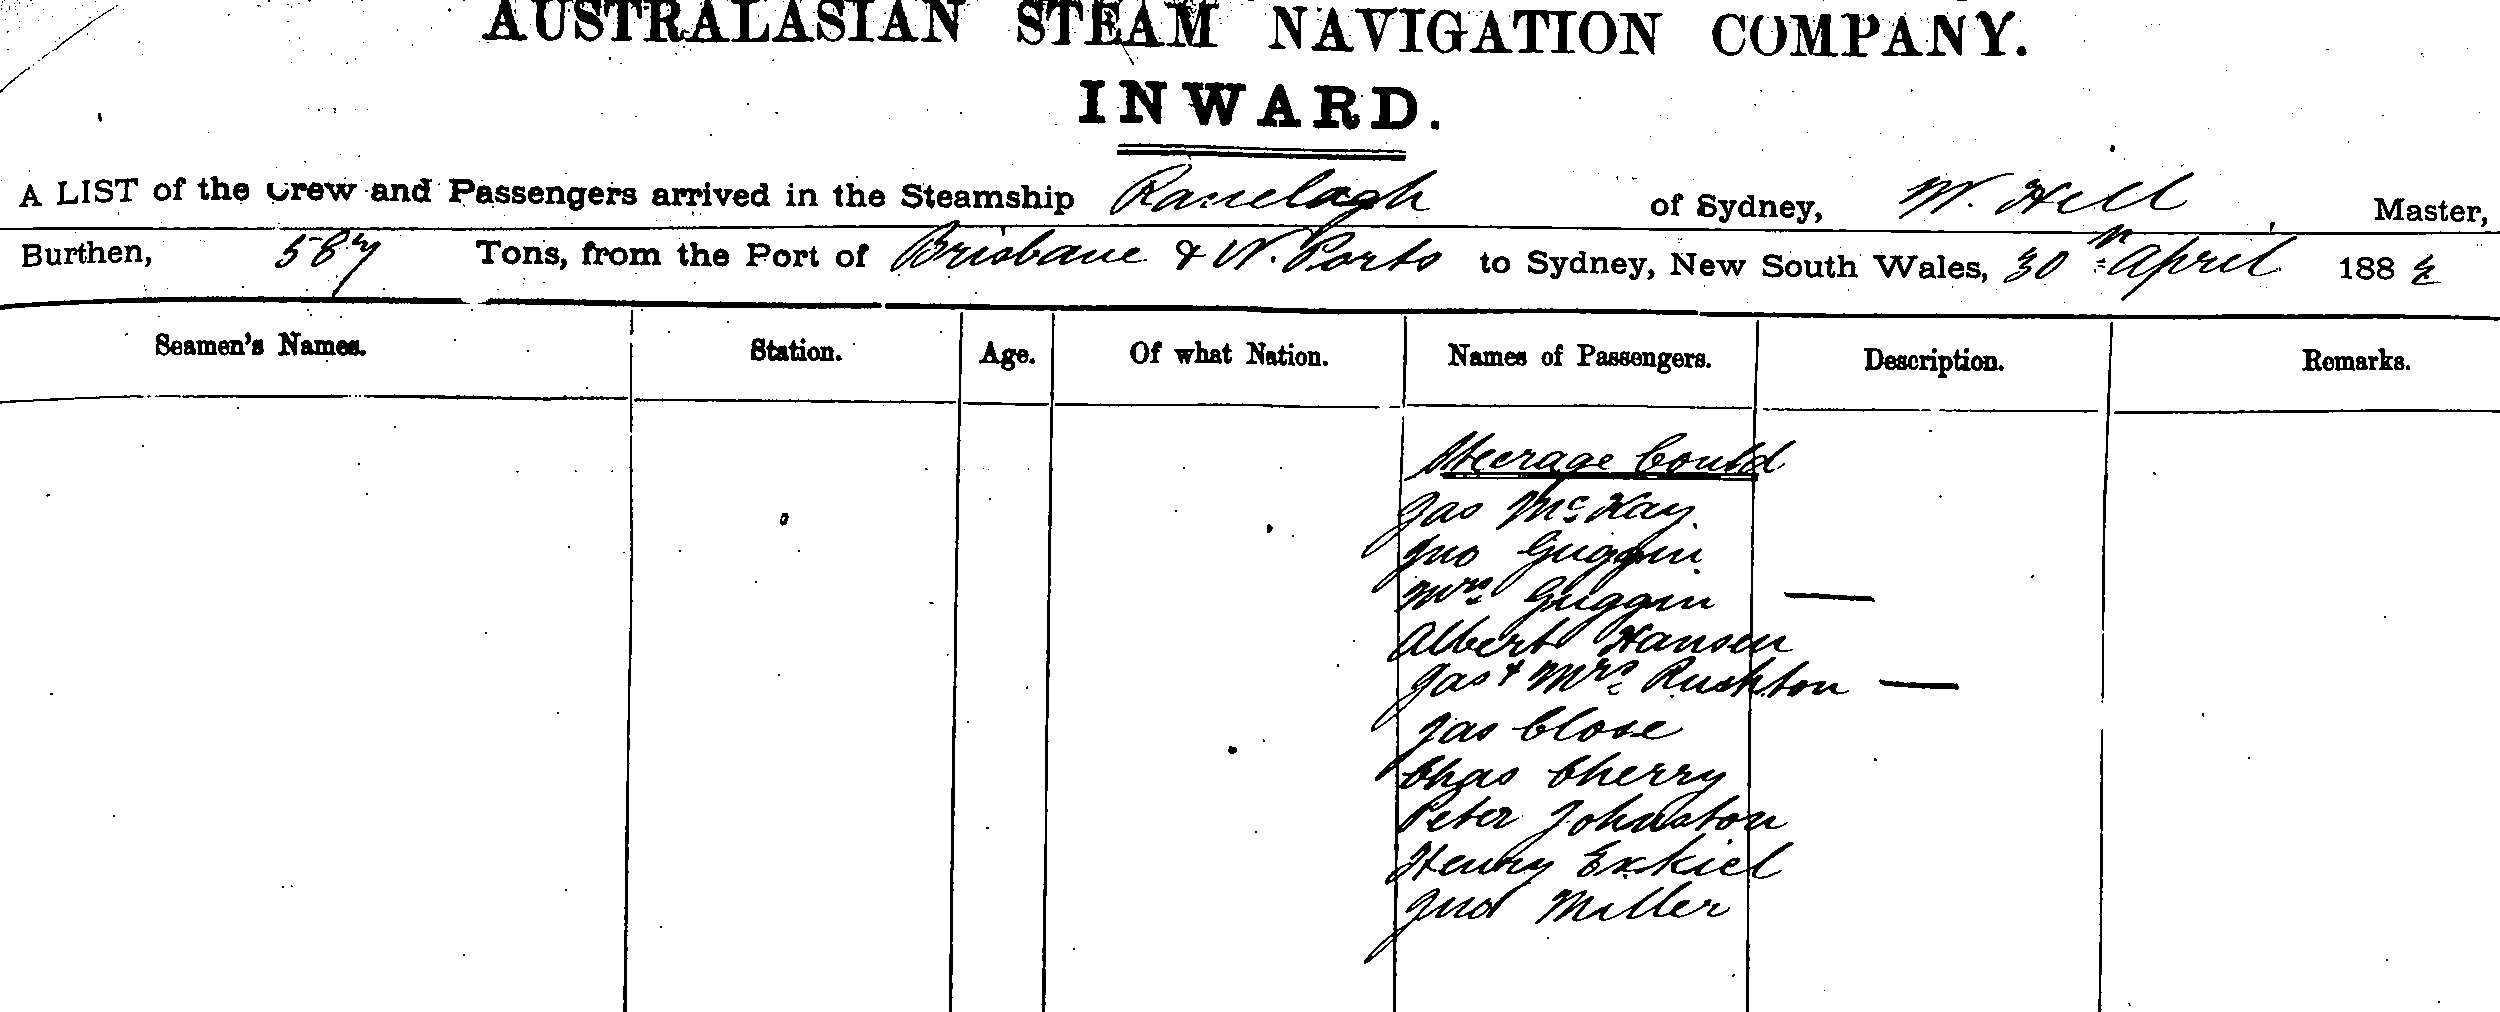 AUSTRALASIAN STEAM NAVIGATION COMPANY.
INWARD.
A LIST of the Crew and Passengers arrived in the Steamship Ranelagh of Sydney, W. Hill, Master,
Burthen, 587 Tons, from the Port of Brisbane & N. Ports to Sydney, New South Wales, 30th April 1882
Seamen's Names. Station. Age. Of what Nation. Names of Passengers. Description. Remarks.
Steerage Contd
Jas McKay
Jno Guggin
Mrs Guggin —
Albert Hansen
Jas & Mrs Rushton —
Jas Close
Chas Cherry
Peter Johnston
Henry Exkiel
Jno Miller